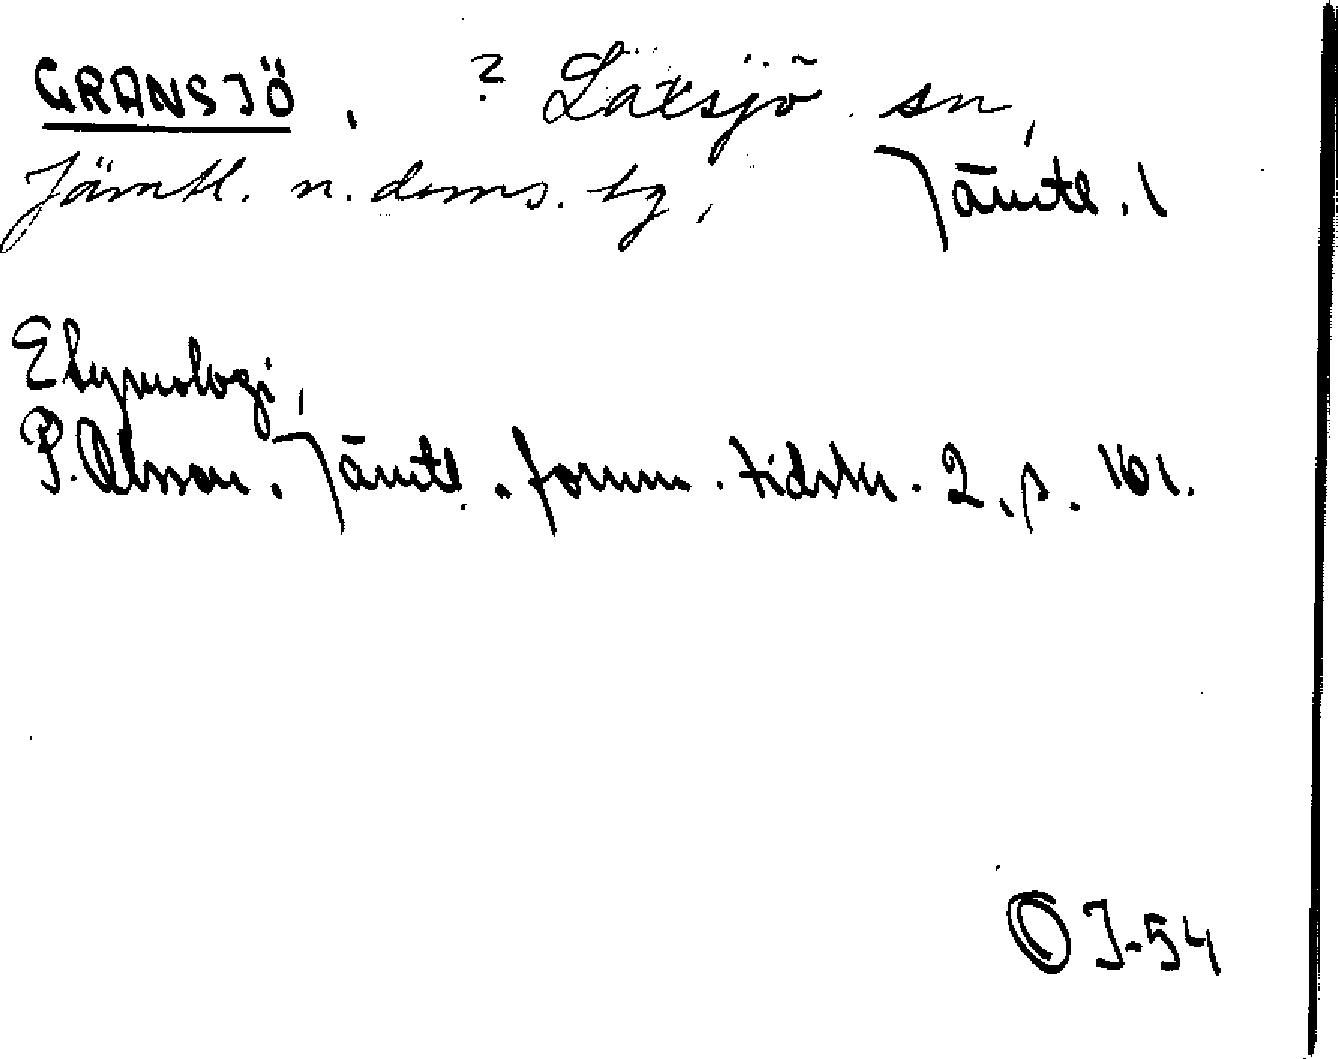 GRANSJÖ, ? Laxsjö sn,
Jämtl. n. doms. tg, Jämtl. l
Etymologi,
P. Olsson. Jämtl. fornm. tidskr. 2, p. 161.
O J-54